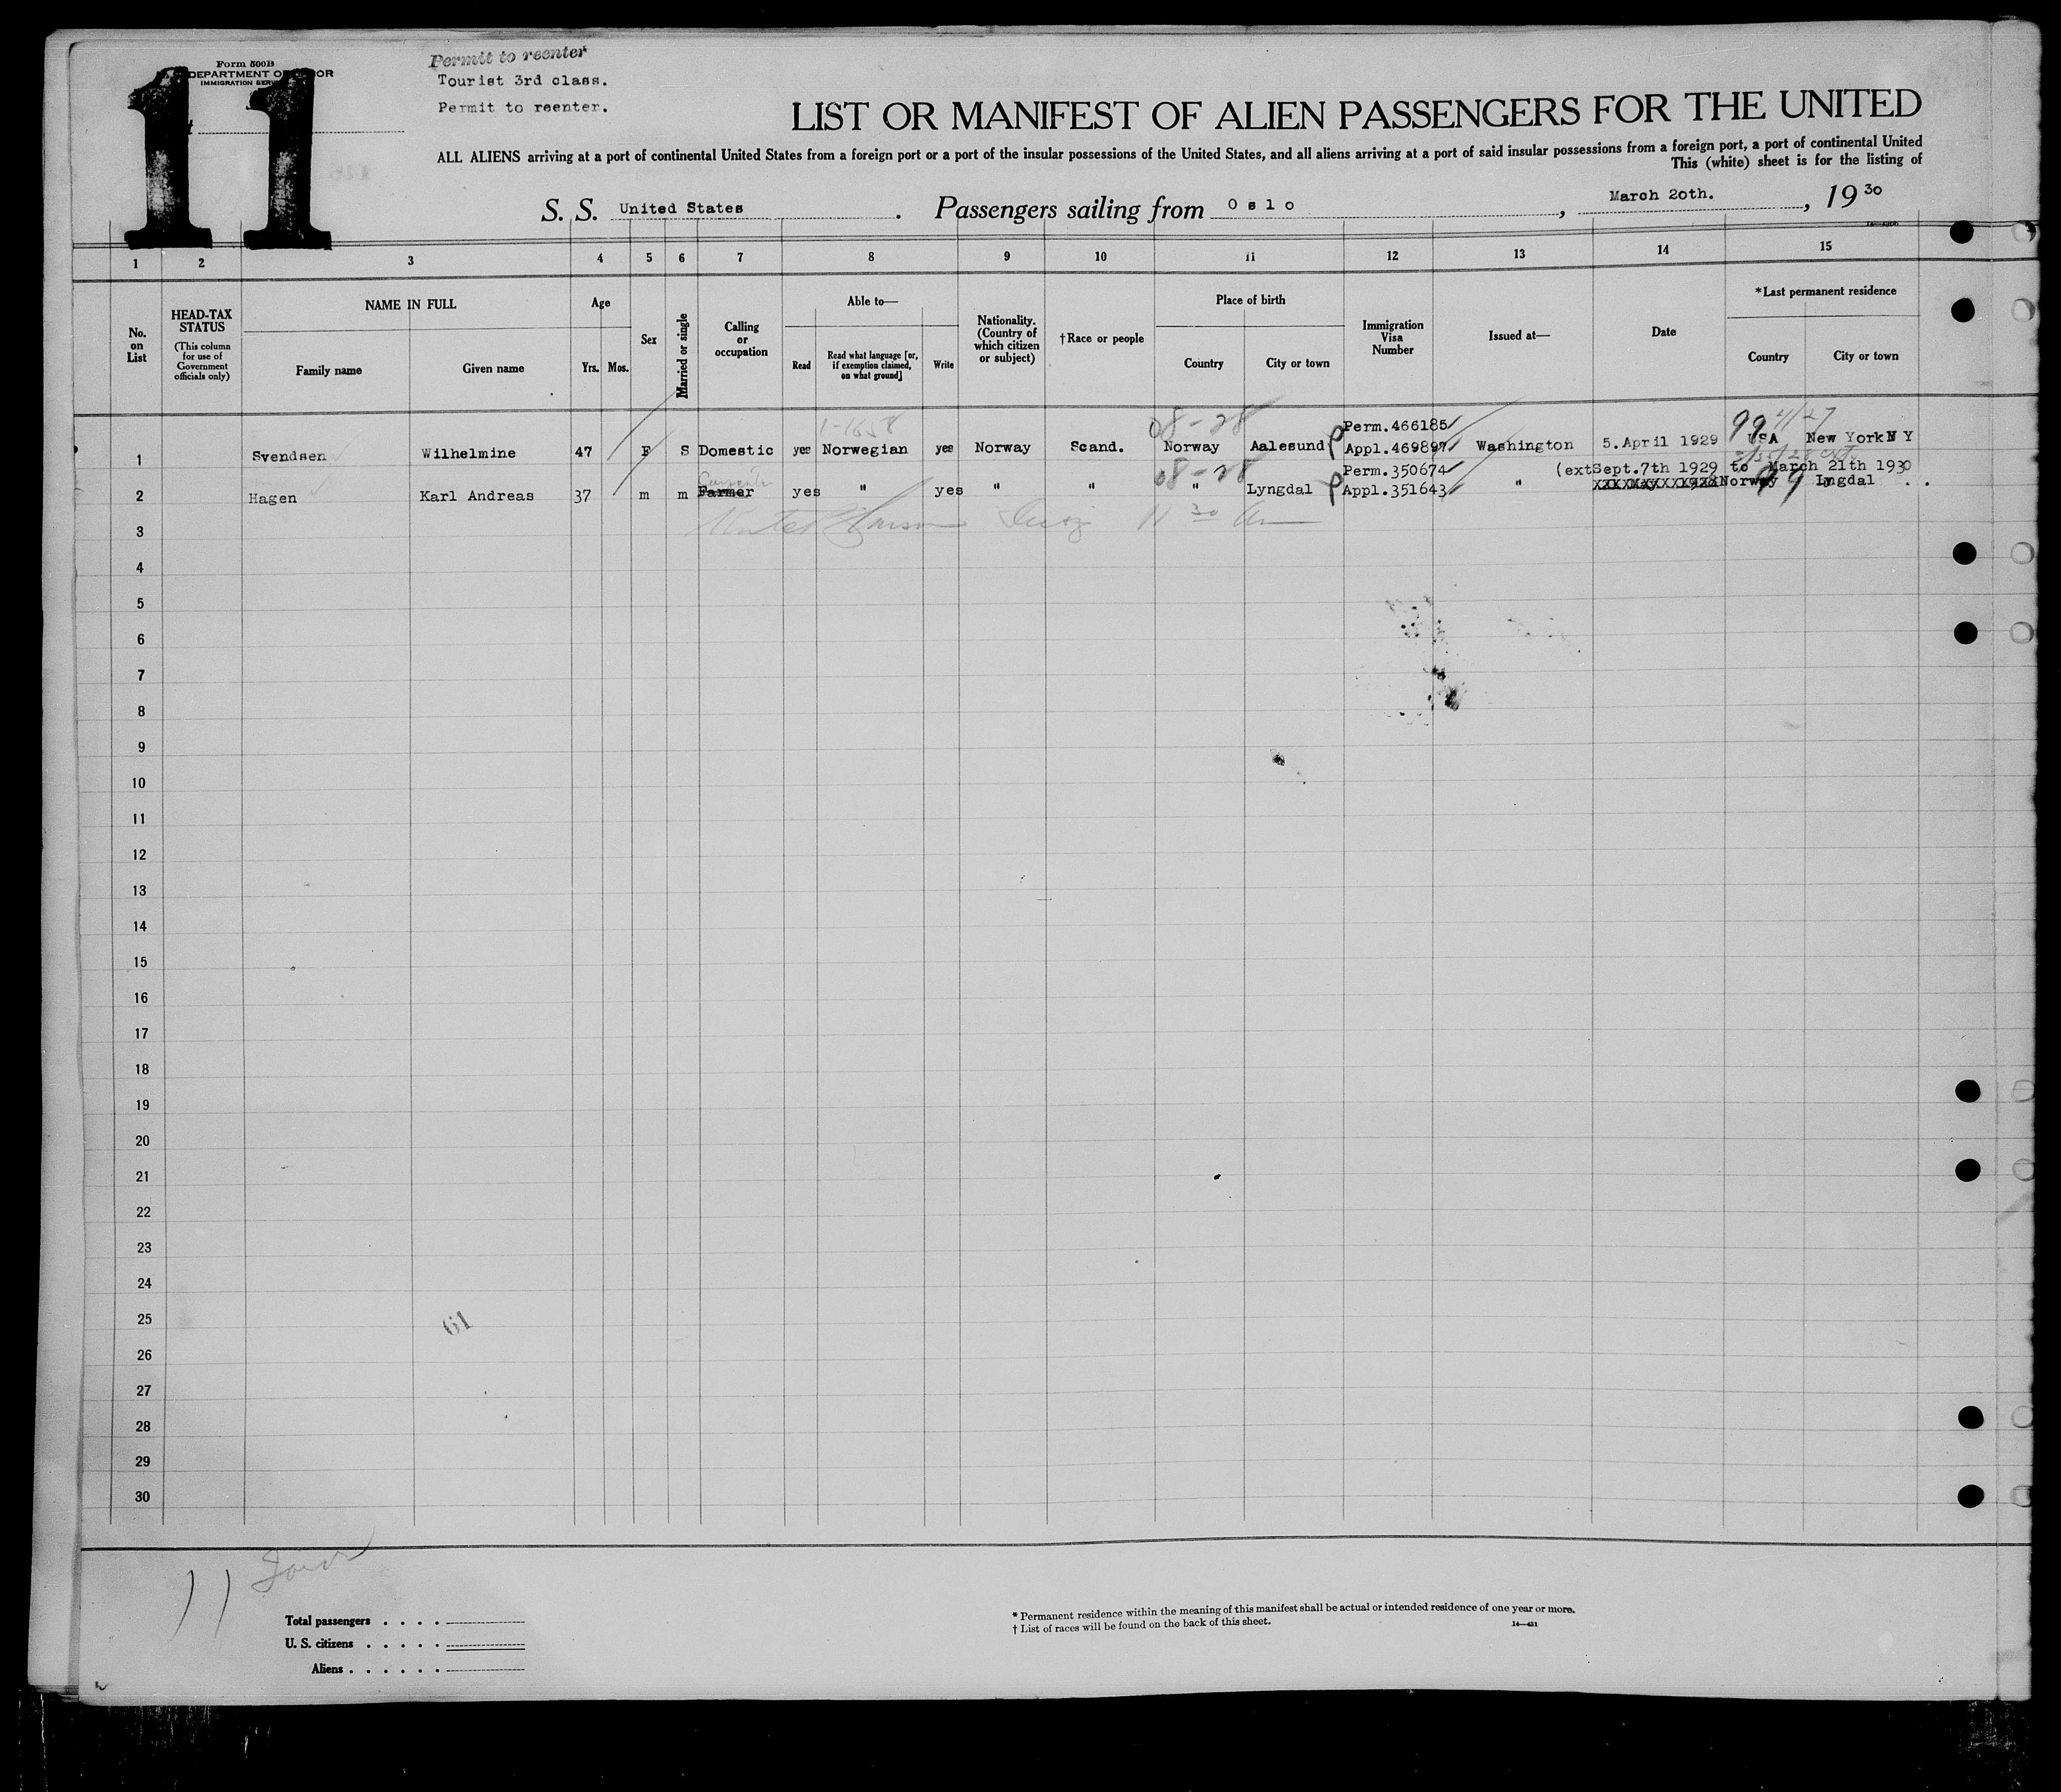 Form 500B
DEPARTMENT OF LABOR
IMMIGRATION SERVICE
11
Permit to reenter
Tourist 3rd class.
Permit to reenter.
LIST OR MANIFEST OF ALIEN PASSENGERS FOR THE UNITED
ALL ALIENS arriving at a port of continental United States from a foreign port or a port of the insular possessions of the United States, and all aliens arriving at a port of said insular possessions from a foreign port, a port of continental United
This (white) sheet is for the listing of
S. S. United States . Passengers sailing from Oslo , March 20th. , 1930
1 2 3 4 5 6 7 8 9 10 11 12 13 14 15
No. on List
HEAD-TAX STATUS
(This column for use of Government officials only)
NAME IN FULL
Family name
Given name
Age
Yrs. Mos.
Sex
Married or single
Calling or occupation
Able to—
Read
Read what language [or, if exemption claimed, on what ground]
Write
Nationality. (Country of which citizen or subject)
†Race or people
Place of birth
Country
City or town
Immigration Visa Number
Issued at—
Date
*Last permanent residence
Country
City or town
1-1658 08-28 Perm.466185 99 4/27
1 Svendsen Wilhelmine 47 F S Domestic yes Norwegian yes Norway Scand. Norway Aalesund Appl.469897 Washington 5.April 1929 USA New York N Y
08-28 Perm.350674 (ext Sept.7th 1929 to March 21th 1930
2 Hagen Karl Andreas 37 m m Farmer yes " yes " " " Lyngdal Appl.351643 " Norway 99 Lngdal
3
4
5
6
7
8
9
10
11
12
13
14
15
16
17
18
19
20
21
22
23
24
25
61
26
27
28
29
30
11
Total passengers . . . .
U. S. citizens . . . . .
Aliens . . . . . .
* Permanent residence within the meaning of this manifest shall be actual or intended residence of one year or more.
† List of races will be found on the back of this sheet.
14—431